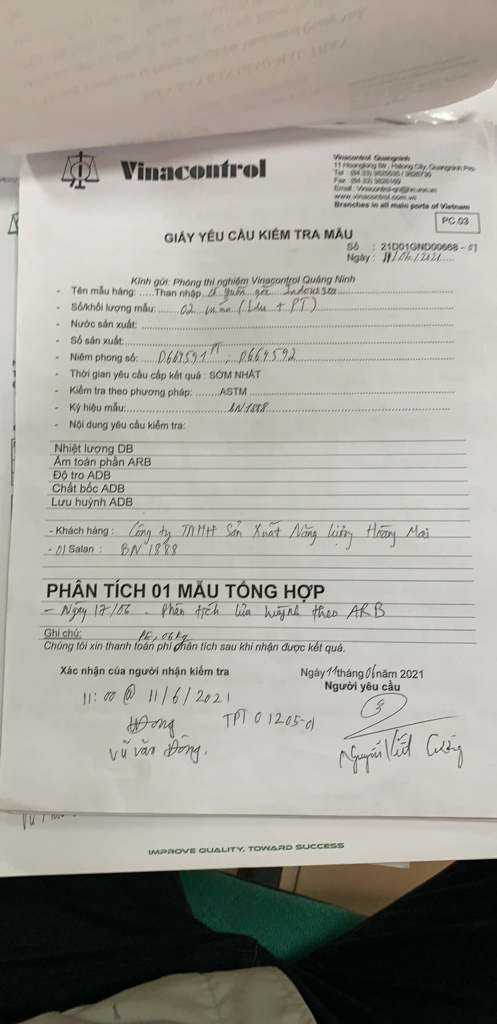 Vinacontrol
Vinacontrol Quangninh
11 Hoanglong Str., Halong City, Quangninh Pro.
Tel : (84.33) 3825635 / 3826736
Fax : (84.33) 3826169
www.vinacontrol.com.vn
Branches in all main ports of Vietnam
PC.03
GIẤY YÊU CẦU KIỂM TRA MẪU
Số : 21D01GND00668 - 01
Ngày : 11/06/2021
Kính gửi: Phòng thí nghiệm Vinacontrol Quảng Ninh
- Tên mẫu hàng: Than nhập có nguồn gốc Indonesia
- Số/khối lượng mẫu: 02 mẫu (Lưu + PT)
- Nước sản xuất:
- Số sản xuất:
- Niêm phong số: D664591 PT, D664592
- Thời gian yêu cầu cấp kết quả : SỚM NHẤT
- Kiểm tra theo phương pháp: ASTM
- Ký hiệu mẫu: BN1888
- Nội dung yêu cầu kiểm tra:
Nhiệt lượng DB
Ẩm toàn phần ARB
Độ tro ADB
Chất bốc ADB
Lưu huỳnh ADB
- Khách hàng : Công ty TNHH Sản Xuất Năng lượng Hoàng Mai
- 01 Salan : BN 1888
PHÂN TÍCH 01 MẪU TỔNG HỢP
- Ngày 17/06 - Phân tích lưu huỳnh theo ARB
Ghi chú: PE, 06kg
Chúng tôi xin thanh toán phí phân tích sau khi nhận được kết quả.
Xác nhận của người nhận kiểm tra
Ngày 11 tháng 06 năm 2021
Người yêu cầu
11:00 @ 11/6/2021
Đông
TPT 01205-01
Vũ Văn Đông.
Nguyễn Viết Cường
IMPROVE QUALITY, TOWARD SUCCESS